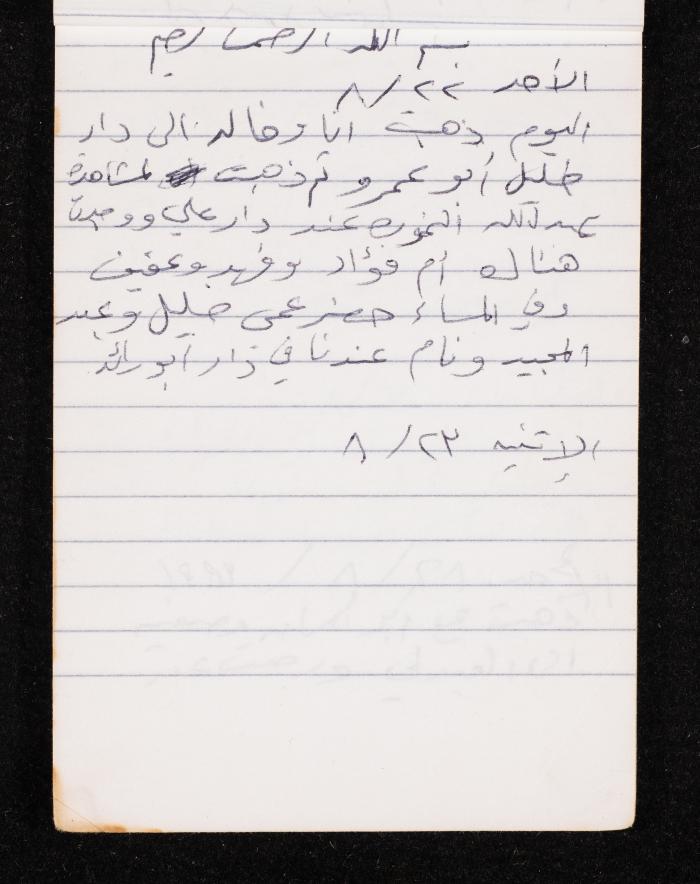 بسم الله الرحمن الرحيم
الأحد ٢٢/٨
اليوم ذهبت انا وخالد الى دار
خليل أبو عمرو ثم ذهبت لمشاهدة
عند دار علي ووجدنا
هناك أم فؤاد وفهد وعفيف
وفي المساء حضر عمي خليل وعبد
المجيد ونام عندنا في دار أبو رائد
الإثنين ٢٣/٨